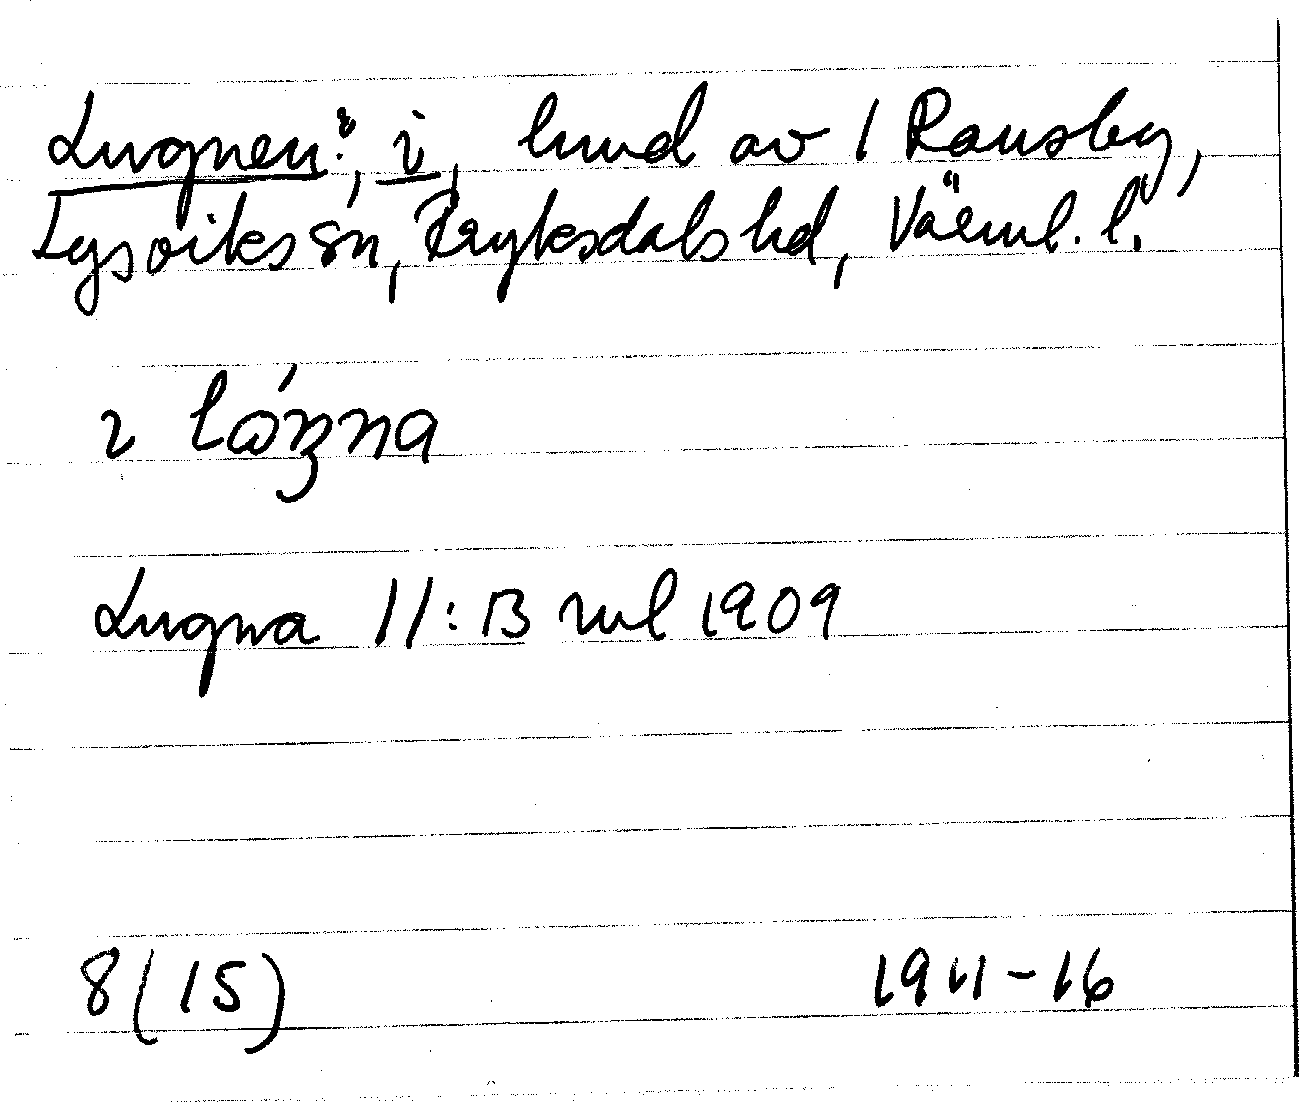 Lugnen?, i, lund av 1 Ransby,
Lysviks sn, Fryksdals hd, Värml. l.
ı lóʒna
Lugna 11:B rul 1909
8(15) 1911-16